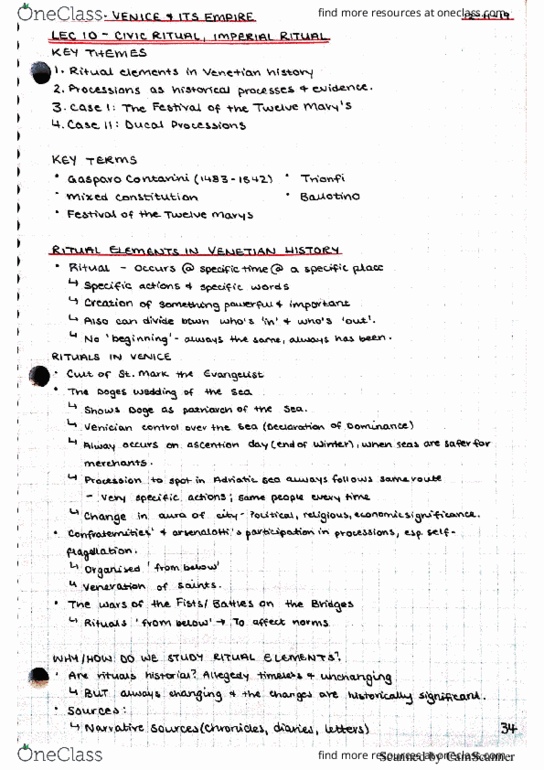 OneClass
find more resources at oneclass.com
- VENICE & ITS EMPIRE
LEC 10 - CIVIC RITUAL, IMPERIAL RITUAL
KEY THEMES
1. Ritual elements in Venetian history
2. Processions as historical processes & evidence.
3. Case I: The Festival of the Twelve Mary's
4. Case II: Ducal Processions
KEY TERMS
• Gasparo Contarini (1483-1542) • Trionfi
• Mixed constitution • Ballotino
• Festival of the Twelve Marys
RITUAL ELEMENTS IN VENETIAN HISTORY
• Ritual - Occurs @ specific time @ a specific place
↳ Specific actions & specific words
↳ Creation of something powerful & important
↳ Also can divide down who's 'in' & who's 'out'.
↳ No 'beginning' - always the same, always has been.
RITUALS IN VENICE
• Cult of St. Mark the Evangelist
• The Doges wedding of the Sea
↳ Shows Doge as patriarch of the Sea.
↳ Venician control over the Sea (Declaration of Dominance)
↳ Alway occurs on ascention day (end of winter), when seas are safer for
merchants.
↳ Procession to spot in Adriatic sea always follows same route
- Very specific actions; same people every time
↳ Change in aura of city - Political, religious, economic significance.
• Confraternities' & arsenalotti's participation in processions, esp self-
flagellation.
↳ Organised 'from below'
↳ Veneration of Saints.
• The Wars of the Fists/Battles on the Bridges
↳ Rituals 'from below' → To affect norms
WHY/HOW DO WE STUDY RITUAL ELEMENTS?
• Are rituals historical? Allegedy timeless & unchanging
↳ BUT always changing & the changes are historically significant.
• Sources:
↳ Narrative Sources (chronicles, diaries, letters)
34
OneClass
find more resources at oneclass.com
Scanned by CamScanner